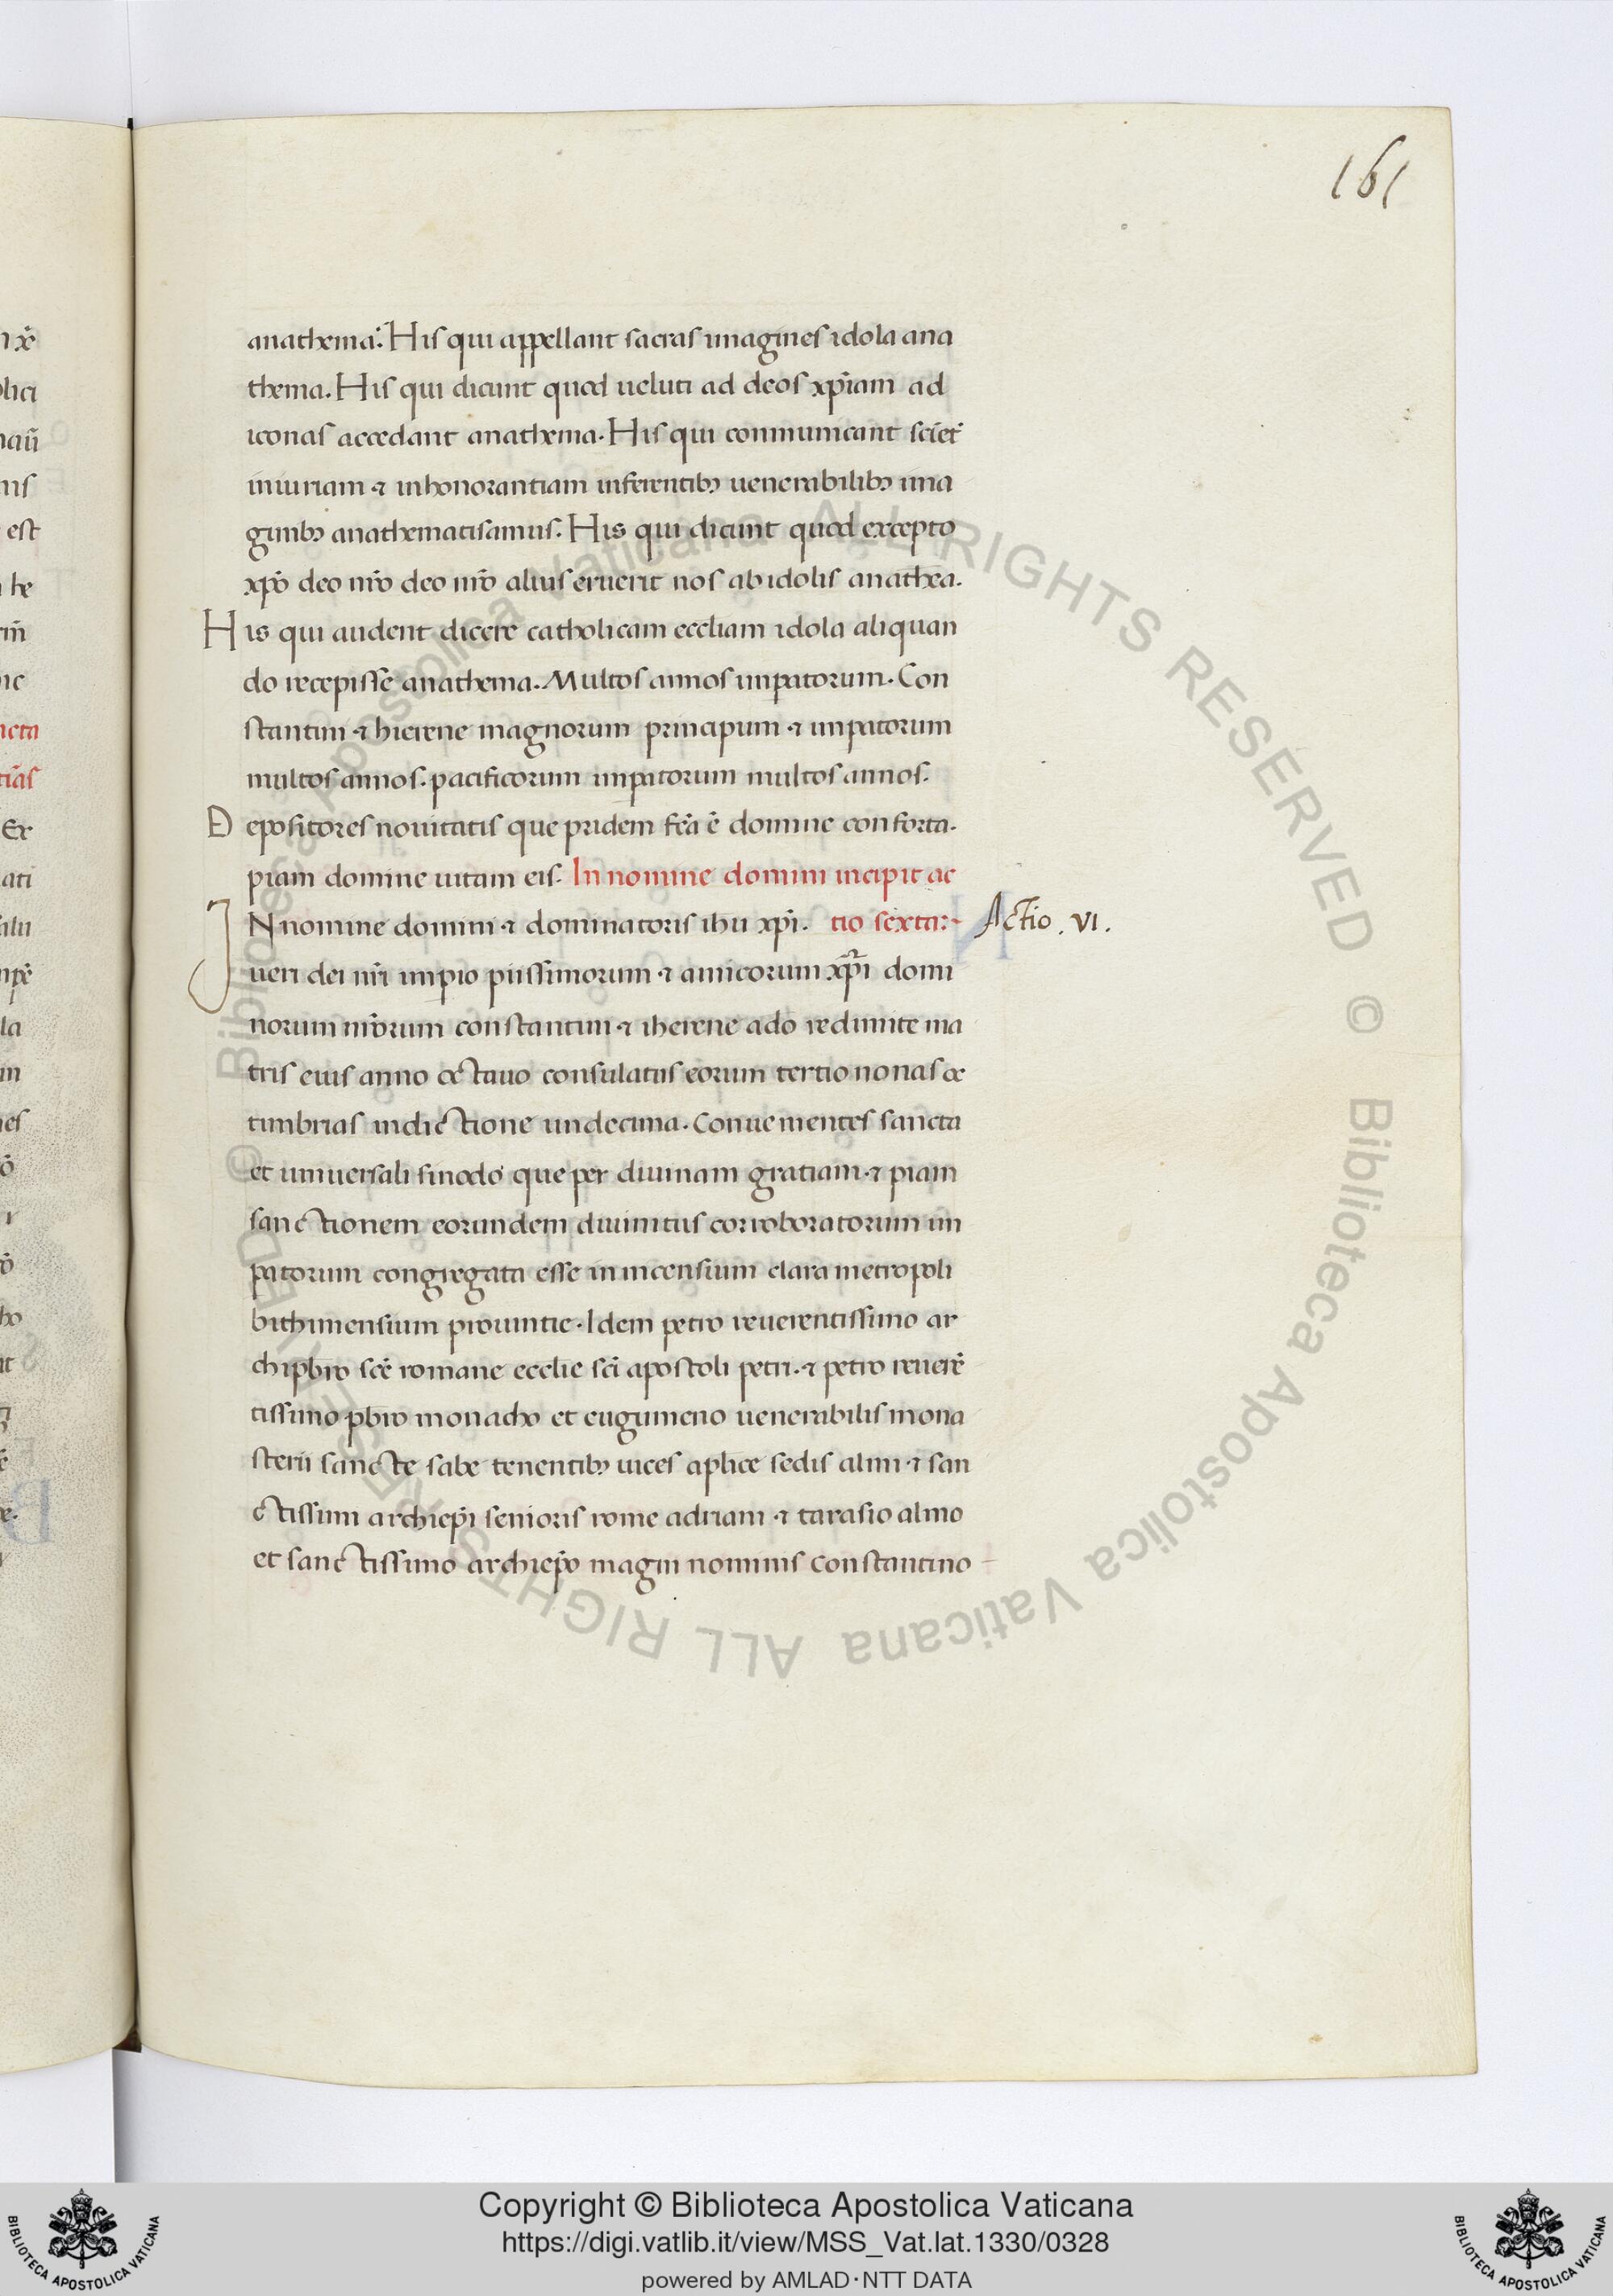 161
anathema. His qui appellant sacras imagines idola ana
thema. His qui dicunt quod ueluti ad deos xp̄iam ad
iconas accedant anathema. His qui communicant sciet̄
iniuriam ⁊ inhonorantiam inferentibꝫ uenerabilibꝫ ima
ginibꝫ anathematisamus. His qui dicunt quod excepto
xp̄o deo nr̄o deo nr̄o alius eruerit nos ab idolis anathēa.
His qui audent dicere catholicam eccliam idola aliquan
do recepisse anathema. Multos annos impatorum. Con
stantini ⁊ hierene magnorum principum ⁊ impatorum
multos annos. pacificorum impatorum multos annos.
Depositores nouitatis que pridem fc̄a ē domine conforta.
piam domine uitam eis. In nomine domini incipit ac
IN nomine domini ⁊ dominatoris ihu xp̄i. tio sexta:~
Actio . VI .
ueri dei nr̄i impio piissimorum ⁊ amicorum xp̄i domi
norum nr̄orum constantini ⁊ iherene ado redimite ma
tris eius anno octauo consulatus eorum tertio nonas oc
timbrias indictione undecima. Conuenientes sancta
et uniuersali sinodo que per diuinam gratiam ⁊ piam
sanctionem eorundem diuinitus corroboratorum im
patorum congregata esse in incensium clara metropoli
bithinensium prouintie. Idem petro reuerentissimo ar
chipbr̄o scē romane ecclie sc̄i apostoli petri. ⁊ petro reuerē
tissimo pbr̄o monacho et eugumeno uenerabilis mona
sterii sancte sabe tenentibꝫ uices aplice sedis almi ⁊ san
ctissimi archiep̄i senioris rome adriani ⁊ tarasio almo
et sanctissimo archiep̄o magni nominis constantino
Copyright © Biblioteca Apostolica Vaticana
https://digi.vatlib.it/view/MSS_Vat.lat.1330/0328
powered by AMLAD · NTT DATA
BIBLIOTECA APOSTOLICA VATICANA
BIBLIOTECA APOSTOLICA VATICANA
© Biblioteca Apostolica Vaticana ALL RIGHTS RESERVED © Biblioteca Apostolica Vaticana ALL RIGHTS RESERVED